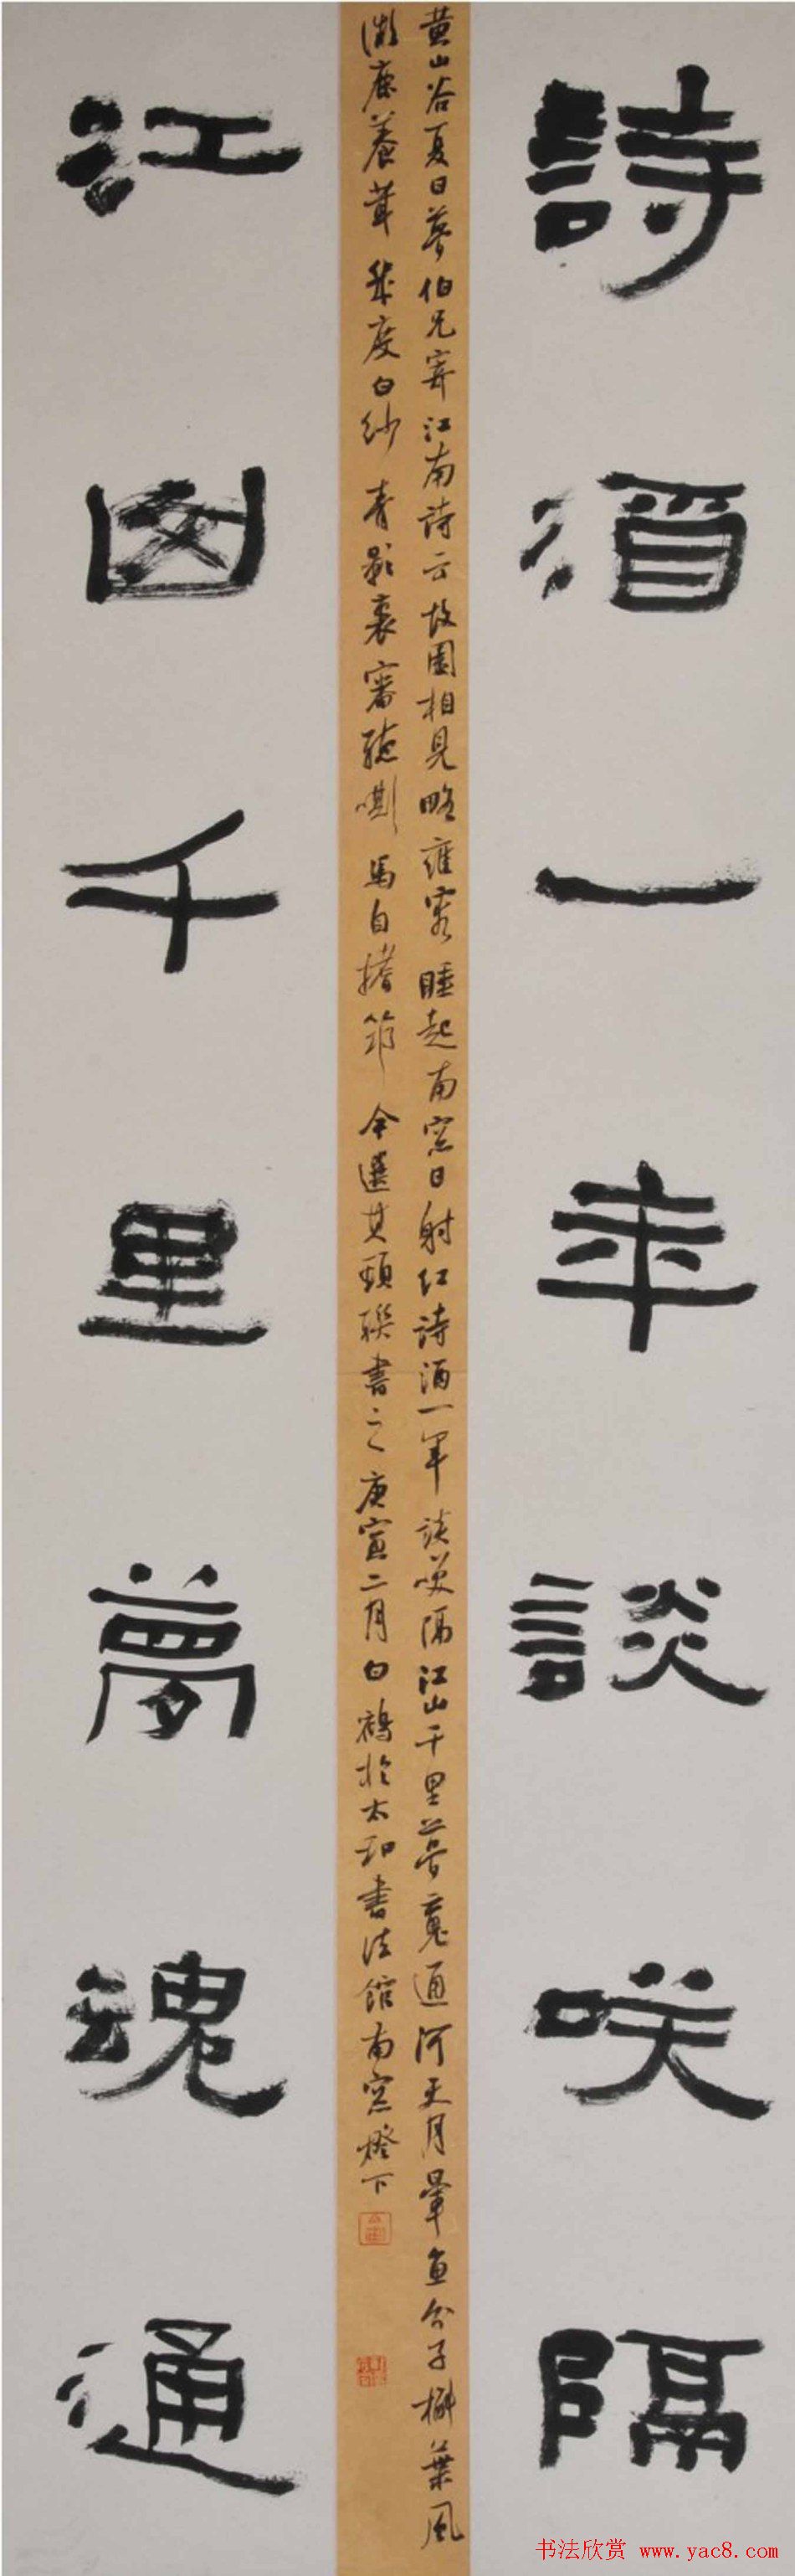 詩酒一年談咲隔
黄山谷夏日夢伯兄寄江南詩云故園相見略雍容睡起南窓日射紅詩酒一年談咲隔江山千里夢魂通河天月暈魚分子槲葉風
微鹿養茸幾度白紗青影裏審聽嘶馬自搘筇今選其頸聯書之庚寅二月白鶴於太和書法館南窓燈下
江山千里夢魂通
书法欣赏 www.yac8.com